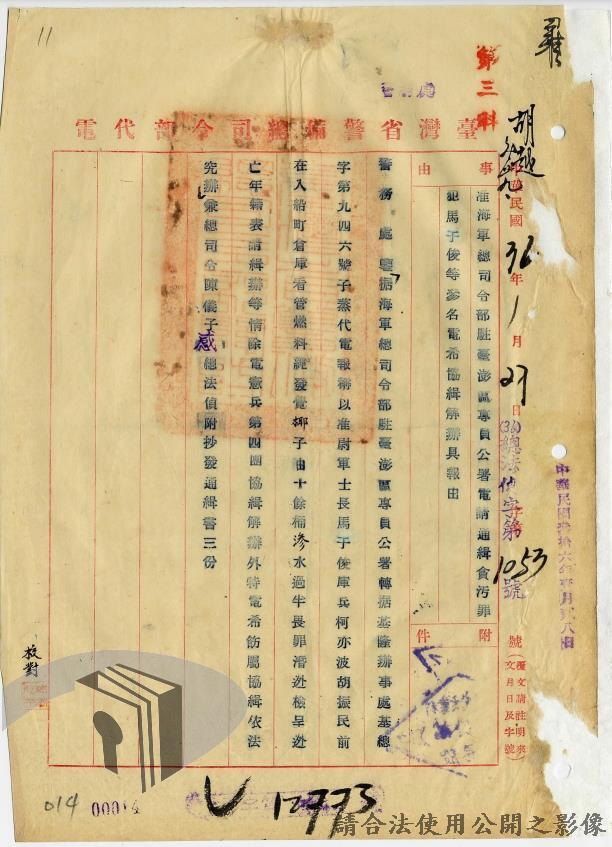 11
第三科
胡越
臺灣省警備總司令部代電
中華民國36年1月27日
(36)總法偵字第1053號
號(覆文請註明來文月日及字號)
中華民國叁拾六年壹月貳八日
事由
准海軍總司令部駐臺澎區專員公署電請通緝貪污罪
犯馬子俊等叁名電希協緝解辦具報由
附件
警務處鑒據海軍總司令部駐臺澎區專員公署轉據基隆辦事處基總
字第九四六號子蒸代電報稱以准尉軍士長馬子俊庫兵柯亦波胡振民前
在入船町倉庫看管燃料經發覺椰子油十餘桶滲水過半畏罪潛逃檢呈逃
亡年籍表請緝辦等情除電憲兵第四團協緝解辦外特電希飭屬協緝依法
究辦兼總司令陳儀子感總法偵附抄發通緝書三份
校對
014
00014
12773
請合法使用公開之影像